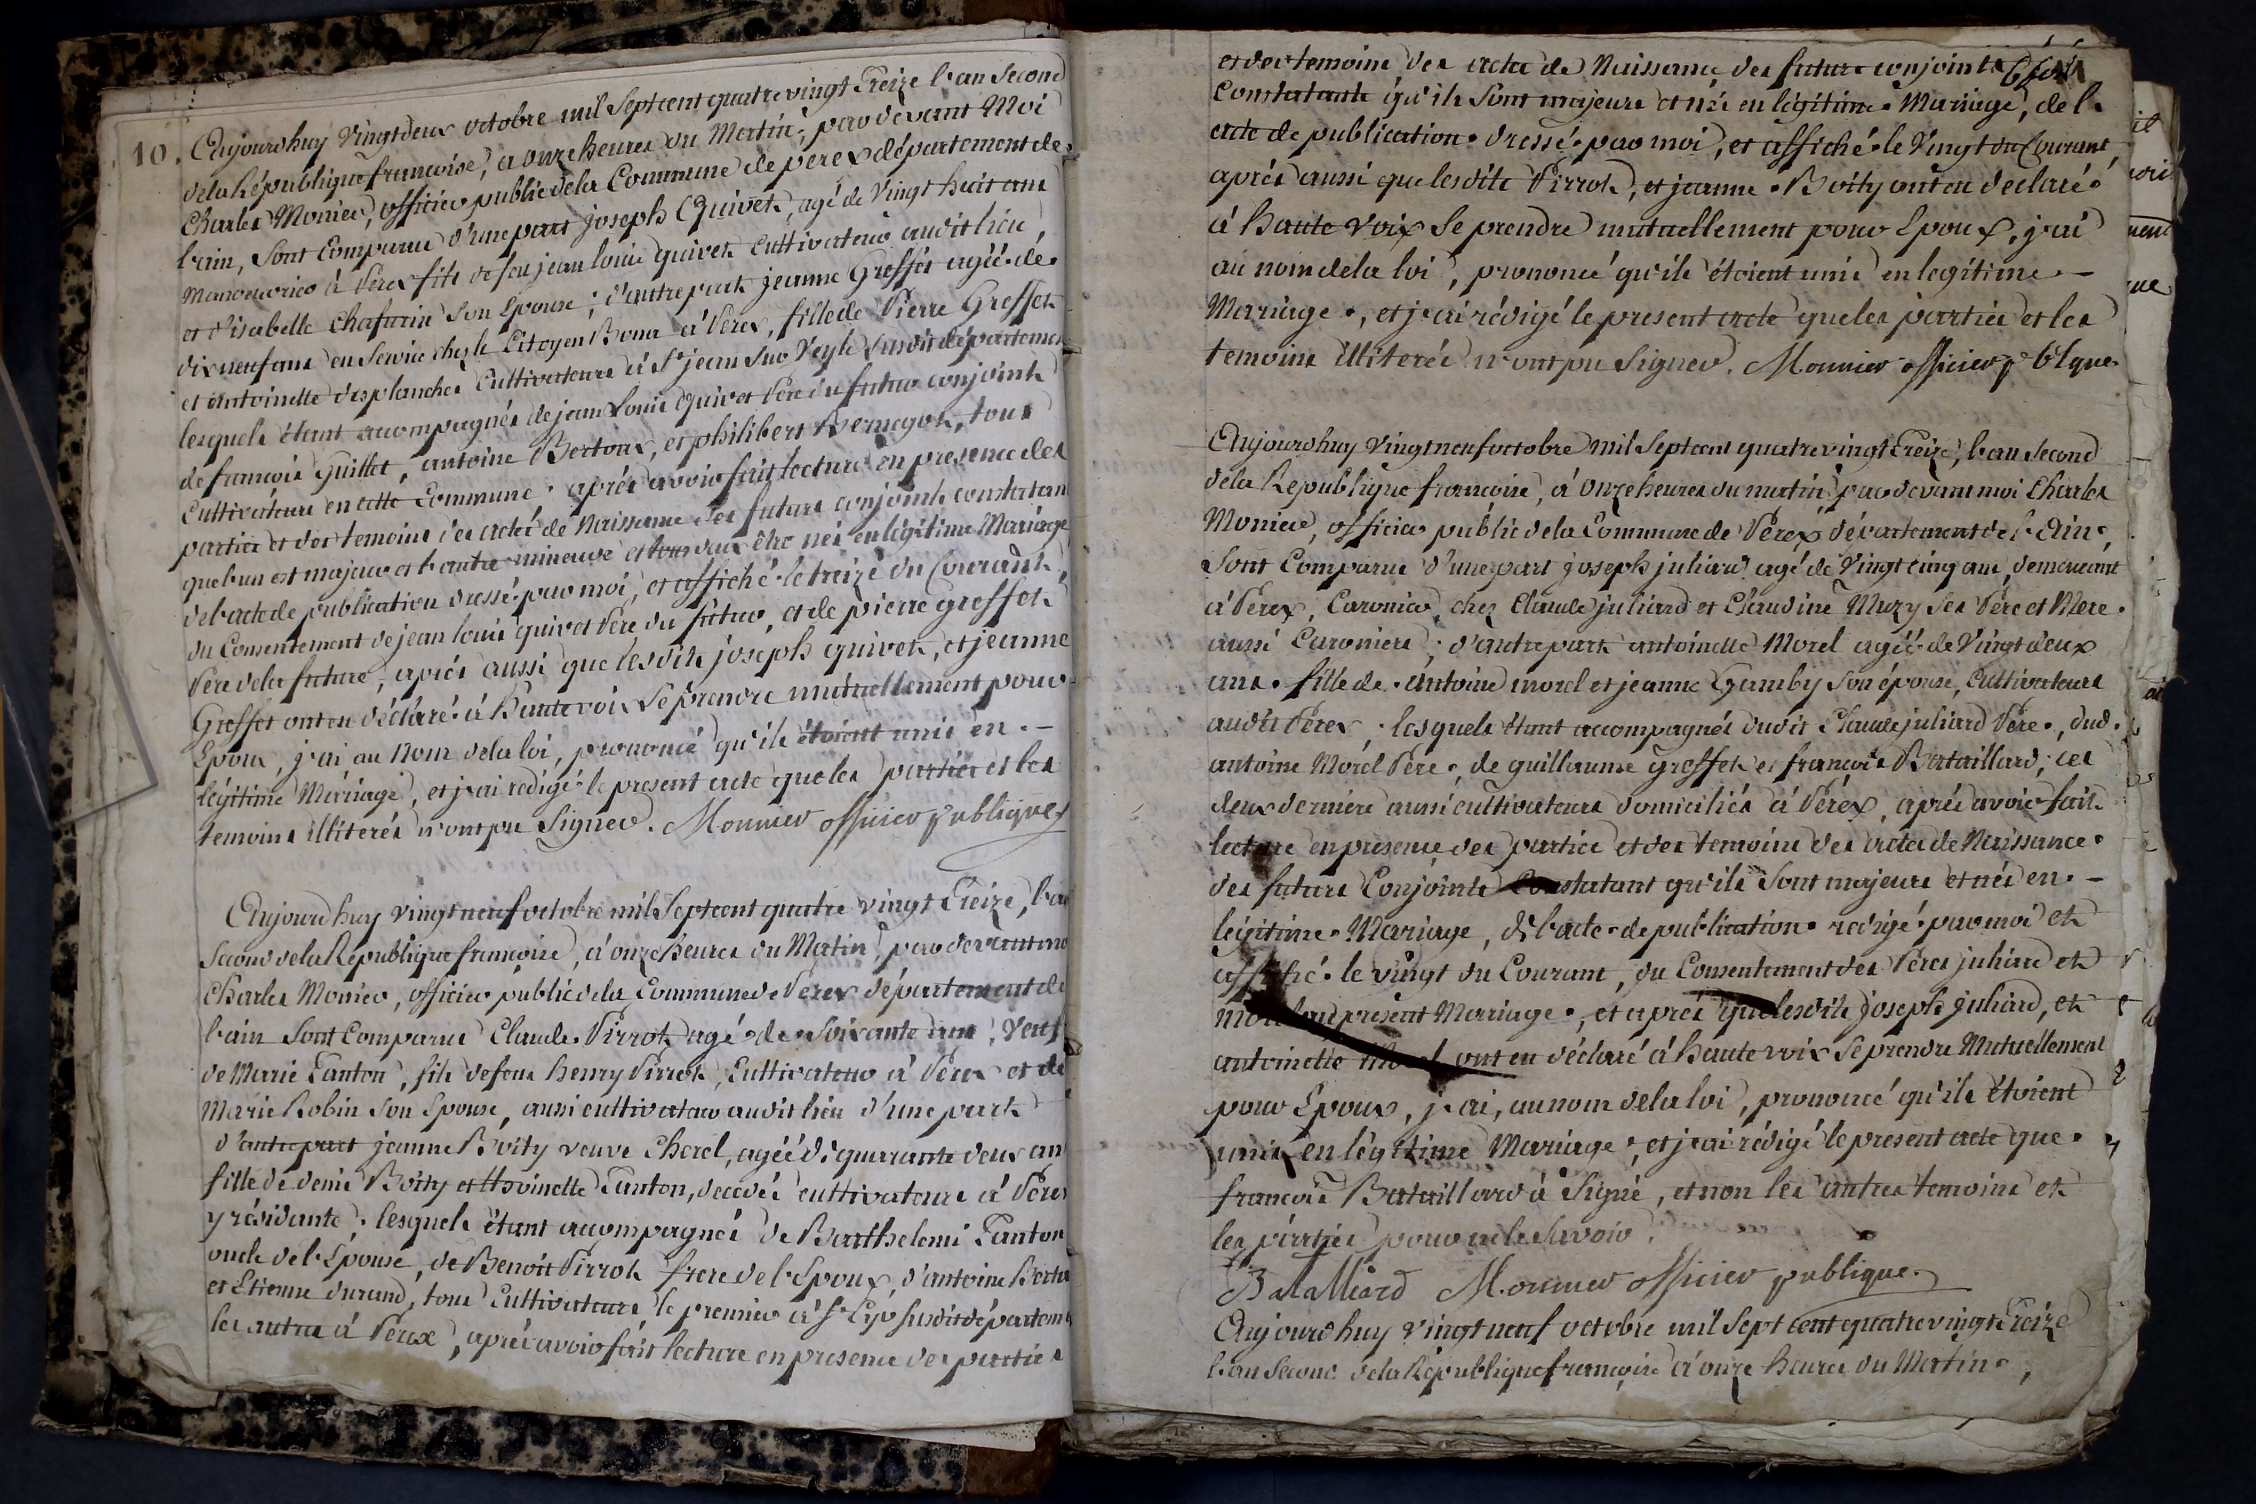 10. Aujourdhuy vingt deux octobre mil Sept cent quatre vingt Treize l'an Second
dela République françoise, a onze heures du Matin, par devant Moi
Charles Monier, officier public dela Commune de perex département de
l'ain, Sont Comparus d'une part joseph Quivet, agé de vingt huit ans
manoeuvrier à Perex fils de feu jean louis quivet Cultivateur audit lieu,
et d'isabelle Chafurin Son Epouse; d'autre part jeanne Greffet agéé de
dix neuf ans en Service chez le Citoyen Bona à Perex, fille de Pierre Greffet
et antoinette desplanches Cultivateurs à St jean Sur Veyle Susdit départemen
lesquels étant acompagnés de jean louis Quivet Père du futur conjoint
de françois Guillet, antoine Bertoux, et philibert Bernigot, tous
Cultivateurs en cette Commune. aprés avoir fait lecture en presence des
parties et des temoins des actes de Naissance des futurs conjoints constatan
que l'un est majeur et l'autre mineure et tous deux être nés en légitime Mariage
del'acte de publication dressé par moi, et affiché le treize du Courant,
du Consentement de jean louis quivet Père du futur, et de pierre greffet
Père dela future, aprés aussi que lesdits joseph quivet, et jeanne
Greffet ont eu déclaré à haute voix Se prendre mutuellement pour
Epoux, j'ai au Nom dela loi, prononcé qu'ils étoient unis en
légitime Mariage, et j'ai redigé le present acte que les parties et les
temoins illiterés n'ont pu Signer. Monnier officier publique
Aujourdhuy vingt neuf octobre mil Sept cent quatre vingt Treize, l'an
Second dela République françoise, à onze heures du Matin, par devant moi
Charles Monier, officier public dela Commune de Perex département de
l'ain Sont Comparus Claude Pirrot agé de Soixante ans, Veuf
de Marie Tanton, fils de feu henry Pirrot, Cultivateur à Perex et de
Marie Robin Son Epouse, aussi cultivateur audit lieu d'une part
d'autre part jeanne Boity veuve Chorel, agéé de quarante deux ans
fille de denis Boity et Thoinette Tanton, decedés cultivateurs à Perex
y residante. lesquels étant acompagnés de Barthelemi Tanton
oncle de l'Epouse, de Benoit Pirrot frere de l'Epoux, d'antoine Berto
et Etienne durand, tous Cultivateurs, le premier à St Cyr Susdit départem
les autres à Perex, aprés avoir fait lecture en presence des parties
et des temoins des actes de Naissance des futurs conjoints
Constatants qu'ils Sont majeurs et nés en légitime Mariage, de l'
acte de publication dressé par moi, et affiché le Vingt du Courant,
aprés aussi que lesdits Pirrot, et jeanne Boity ont eu declaré
à haute voix Se prendre mutuellement pour Epoux, j'ai
au nom dela loi, prononcé qu'ils étoient unis en legitime
Mariage, et j'ai rédigé le present acte que les parties et les
temoins illiterés n'ont pu Signer. Monnier officier pblque
Aujourdhuy vingt neuf octobre mil Sept cent quatre vingt Treize, l'an Second
dela République françoise, à onze heures du matin par devant moi Charles
Monier, officier public dela Commune de Pérex département de l'Ain,
Sont Comparus d'une part joseph juliard agé de Vingt cinq ans, demeurant
à Perex, Caronier, chez Claude juliard et Claudine Muzy Ses Père et Mere
aussi Caroniers; d'autre part antoinette Morel agéé de Vingt deux
ans fille de antoine morel et jeanne Gamby Son épouse, Cultivateurs
audit Perex, lesquels étant accompagnés dudit Claude juliard Père, dud.
antoine Morel Père, de guillaume greffet et françois Bataillard; ces
deux derniers aussi cultivateurs domiciliés à Pérex, aprés avoir fait
lecture en presence des parties et des temoins des actes de Naissance
des futurs Conjoints Constatant qu'ils Sont majeurs et nés en
légitime Mariage, de l'acte de publication redigé par moi et
affiché le vingt du Courant, du Consentement des Péres juliard et
Morel au présent Mariage, et aprés que lesdits joseph juliard, et
antoinette Morel ont eu déclaré à haute voix Se prendre Mutuellement
pour Epoux, j'ai, au nom dela loi, prononcé qu'ils étoient
unis en légitime Mariage, et j'ai rédigé le present acte que
françois Bataillard à Signé, et non les autres temoins et
les parties pour ne le Savoir.
Batalliard Monnier officier publique
Aujourdhuy vingt neuf octobre mil Sept cent quatre vingt Treize
l'an Second dela République françoise à onze heures du Matin,